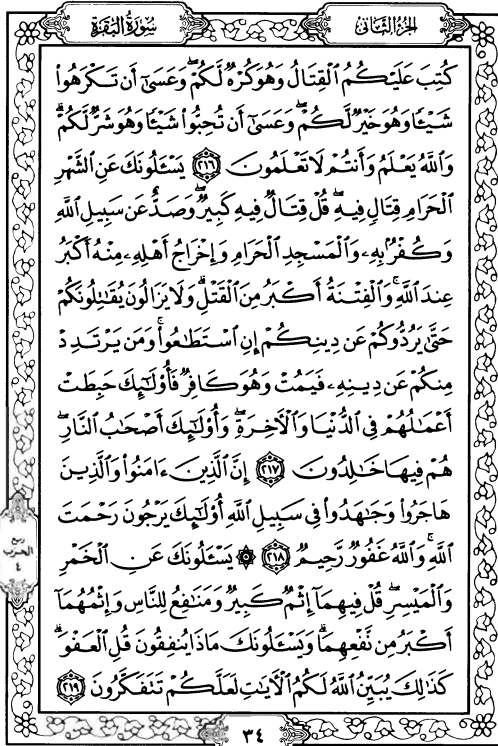 الجزء الثاني
سورة البقرة
كُتِبَ عَلَيْكُمُ الْقِتَالُ وَهُوَ كُرْهٌ لَّكُمْ ۖ وَعَسَىٰ أَن تَكْرَهُوا
شَيْئًا وَهُوَ خَيْرٌ لَّكُمْ ۖ وَعَسَىٰ أَن تُحِبُّوا شَيْئًا وَهُوَ شَرٌّ لَّكُمْ ۗ
وَاللَّهُ يَعْلَمُ وَأَنتُمْ لَا تَعْلَمُونَ ٢١٦ يَسْـَٔلُونَكَ عَنِ الشَّهْرِ
الْحَرَامِ قِتَالٍ فِيهِ ۖ قُلْ قِتَالٌ فِيهِ كَبِيرٌ ۖ وَصَدٌّ عَن سَبِيلِ اللَّهِ
وَكُفْرٌ بِهِ وَالْمَسْجِدِ الْحَرَامِ وَإِخْرَاجُ أَهْلِهِ مِنْهُ أَكْبَرُ
عِندَ اللَّهِ ۚ وَالْفِتْنَةُ أَكْبَرُ مِنَ الْقَتْلِ ۗ وَلَا يَزَالُونَ يُقَاتِلُونَكُمْ
حَتَّىٰ يَرُدُّوكُمْ عَن دِينِكُمْ إِنِ اسْتَطَاعُوا ۚ وَمَن يَرْتَدِدْ
مِنكُمْ عَن دِينِهِ فَيَمُتْ وَهُوَ كَافِرٌ فَأُولَٰئِكَ حَبِطَتْ
أَعْمَالُهُمْ فِي الدُّنْيَا وَالْآخِرَةِ ۖ وَأُولَٰئِكَ أَصْحَابُ النَّارِ ۖ
هُمْ فِيهَا خَالِدُونَ ٢١٧ إِنَّ الَّذِينَ ءَامَنُوا وَالَّذِينَ
هَاجَرُوا وَجَاهَدُوا فِي سَبِيلِ اللَّهِ أُولَٰئِكَ يَرْجُونَ رَحْمَتَ
اللَّهِ ۚ وَاللَّهُ غَفُورٌ رَّحِيمٌ ٢١٨ ۞ يَسْـَٔلُونَكَ عَنِ الْخَمْرِ
وَالْمَيْسِرِ ۖ قُلْ فِيهِمَا إِثْمٌ كَبِيرٌ وَمَنَافِعُ لِلنَّاسِ وَإِثْمُهُمَا
أَكْبَرُ مِن نَّفْعِهِمَا ۗ وَيَسْـَٔلُونَكَ مَاذَا يُنفِقُونَ قُلِ الْعَفْوَ ۗ
كَذَٰلِكَ يُبَيِّنُ اللَّهُ لَكُمُ الْآيَاتِ لَعَلَّكُمْ تَتَفَكَّرُونَ ٢١٩
ربع
الحزب
٤
٣٤